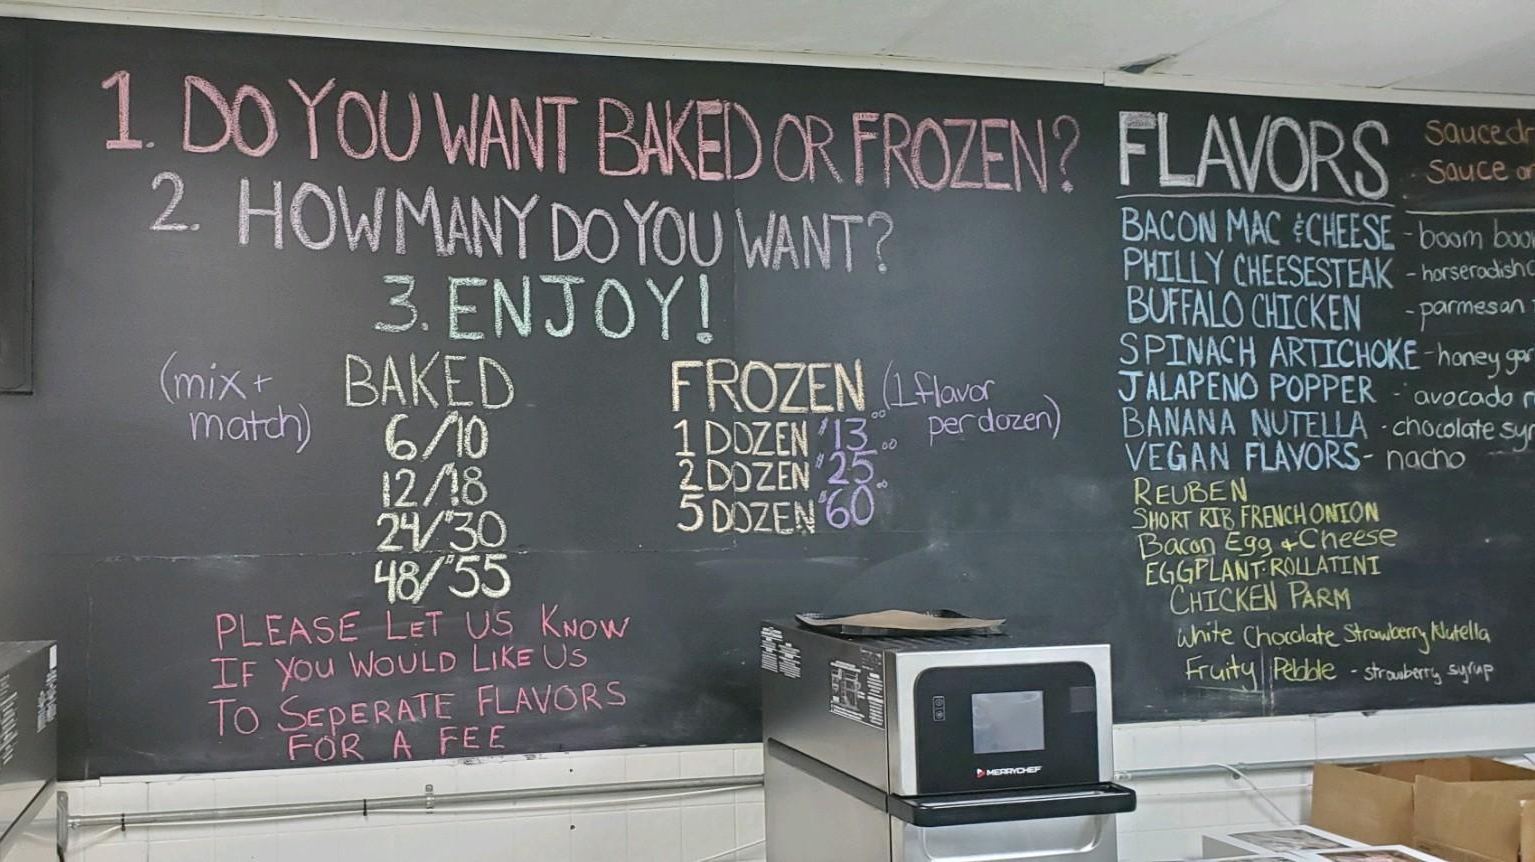 1. DO YOU WANT BAKED OR FROZEN?
2. HOW MANY DO YOU WANT?
3. ENJOY!
(mix +
match)
BAKED
6/10
12/18
24/$30
48/$55
FROZEN
(1 flavor
per dozen)
1 DOZEN $13.00
2 DOZEN $25.00
5 DOZEN $60.00
PLEASE LET US KNOW
IF YOU WOULD LIKE US
TO SEPERATE FLAVORS
FOR A FEE
FLAVORS
Sauce
BACON MAC & CHEESE - boom
PHILLY CHEESESTEAK - horseradish
BUFFALO CHICKEN - parmesan
SPINACH ARTICHOKE - honey
JALAPENO POPPER - avocado
BANANA NUTELLA - chocolate
VEGAN FLAVORS - nacho
REUBEN
SHORT RIB FRENCH ONION
Bacon Egg & Cheese
EGGPLANT ROLLATINI
CHICKEN PARM
White Chocolate Strawberry Nutella
Fruity Pebble - strawberry syrup
MERRYCHEF